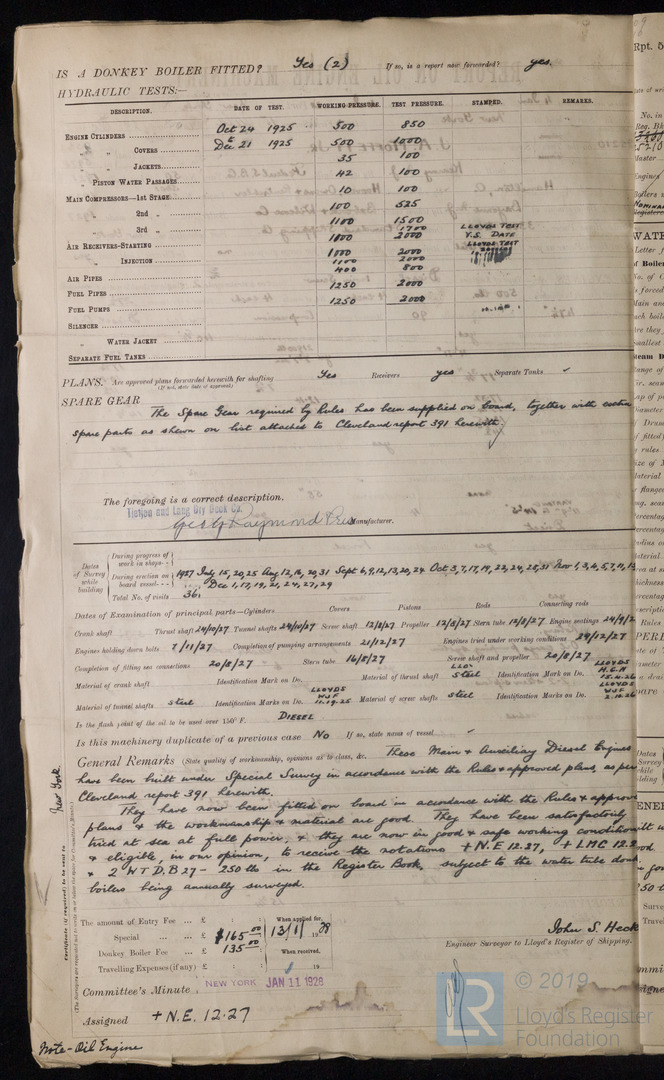 IS A DONKEY BOILER FITTED? Yes (2) If so, is a report now forwarded? yes.
HYDRAULIC TESTS:—
DESCRIPTION. DATE OF TEST. WORKING PRESSURE. TEST PRESSURE. STAMPED. REMARKS.
ENGINE CYLINDERS Oct 24 1925 500 850
„ COVERS Dec 21 1925 500 1000
„ JACKETS 35 100
„ PISTON WATER PASSAGES 42 100
MAIN COMPRESSORS—1st STAGE 10 100
2nd „ 100 525
3rd „ 1100 1500 LLOYDS TEST
AIR RECEIVERS—STARTING 1000 2000 Y.S. DATE
„ INJECTION 1000 2000 LLOYDS TEST
AIR PIPES 400 800
FUEL PIPES 1250 2000
FUEL PUMPS 1250 2000
SILENCER
„ WATER JACKET
SEPARATE FUEL TANKS
PLANS. Are approved plans forwarded herewith for shafting Yes Receivers yes Separate Tanks ✓
(If not, state date of approval)
SPARE GEAR
The Spare Gear required by Rules has been supplied on board, together with extra
spare parts as shewn on list attached to Cleveland report 391 herewith.
The foregoing is a correct description,
Tietjen and Lang Dry Dock Co.
Geo G Raymond Manufacturer.
Dates of Survey while building
During progress of work in shops - -
During erection on board vessel - - - 1927 July 15, 20, 25 Aug 12, 16, 20, 31 Sept 6, 9, 12, 13, 20, 24 Oct 3, 7, 17, 19, 22, 24, 28, 31 Nov 1, 3, 4, 5, 7, 11, 13
Dec 1, 17, 19, 21, 24, 27, 29
Total No. of visits 36.
Dates of Examination of principal parts—Cylinders Covers Pistons Rods Connecting rods
Crank shaft Thrust shaft 24/10/27 Tunnel shafts 24/10/27 Screw shaft 12/8/27 Propeller 12/8/27 Stern tube 12/8/27 Engine seatings 24/9/2
Engines holding down bolts 7/11/27 Completion of pumping arrangements 21/12/27 Engines tried under working conditions 24/12/27
Completion of fitting sea connections 20/8/27 Stern tube 16/8/27 Screw shaft and propeller 20/8/27
Material of crank shaft Identification Mark on Do. Material of thrust shaft Steel Identification Mark on Do. LLOYDS H.G.H 15.4.26
Material of tunnel shafts Steel Identification Marks on Do. LLOYDS WJF 11.19.25 Material of screw shafts Steel Identification Marks on Do. LLOYDS WJF 2.10.26
Is the flash point of the oil to be used over 150° F. DIESEL
Is this machinery duplicate of a previous case No If so, state name of vessel
General Remarks (State quality of workmanship, opinions as to class, &c. These Main & Auxiliary Diesel Engines
have been built under Special Survey in accordance with the Rules & approved plans, as per
Cleveland report 391 herewith.
They have now been fitted on board in accordance with the Rules & approv
plans & the workmanship & material are good. They have been satisfactorily
tried at sea at full power, & they are now in good & safe working condition
& eligible, in our opinion, to receive the notations + N.E 12.27, + LMC 12.2
& 2 WT D.B 27 - 250 lbs in the Register Book, subject to the water tube donk
boilers being annually surveyed.
New York
Certificate (if required) to be sent to
The amount of Entry Fee ... £ : : When applied for,
Special ... ... £ $165.00 13/1/1928
Donkey Boiler Fee ... £ 135.00 When received,
Travelling Expenses (if any) £ : : 19
John S. Heck
Engineer Surveyor to Lloyd's Register of Shipping.
Committee's Minute NEW YORK JAN 11 1928
Assigned + N.E. 12.27
Note - Oil Engine
LR
© 2019
Lloyd's Register
Foundation